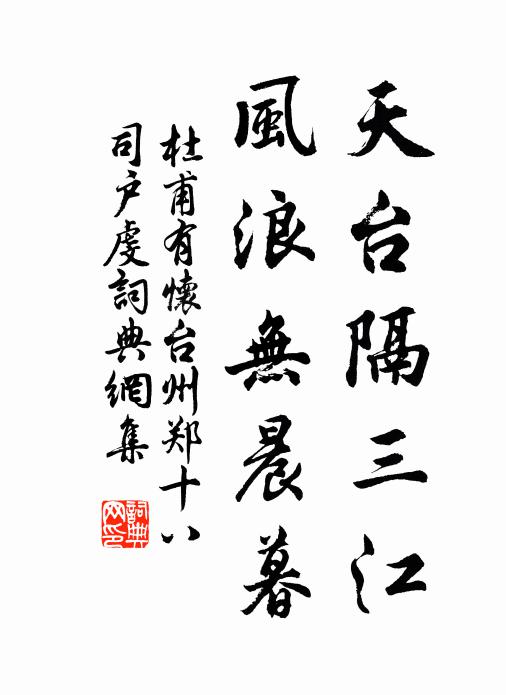 天台隔三江
風浪無晨暮
杜甫有懷台州郑十八
司户虔詞典網集
詞典网印